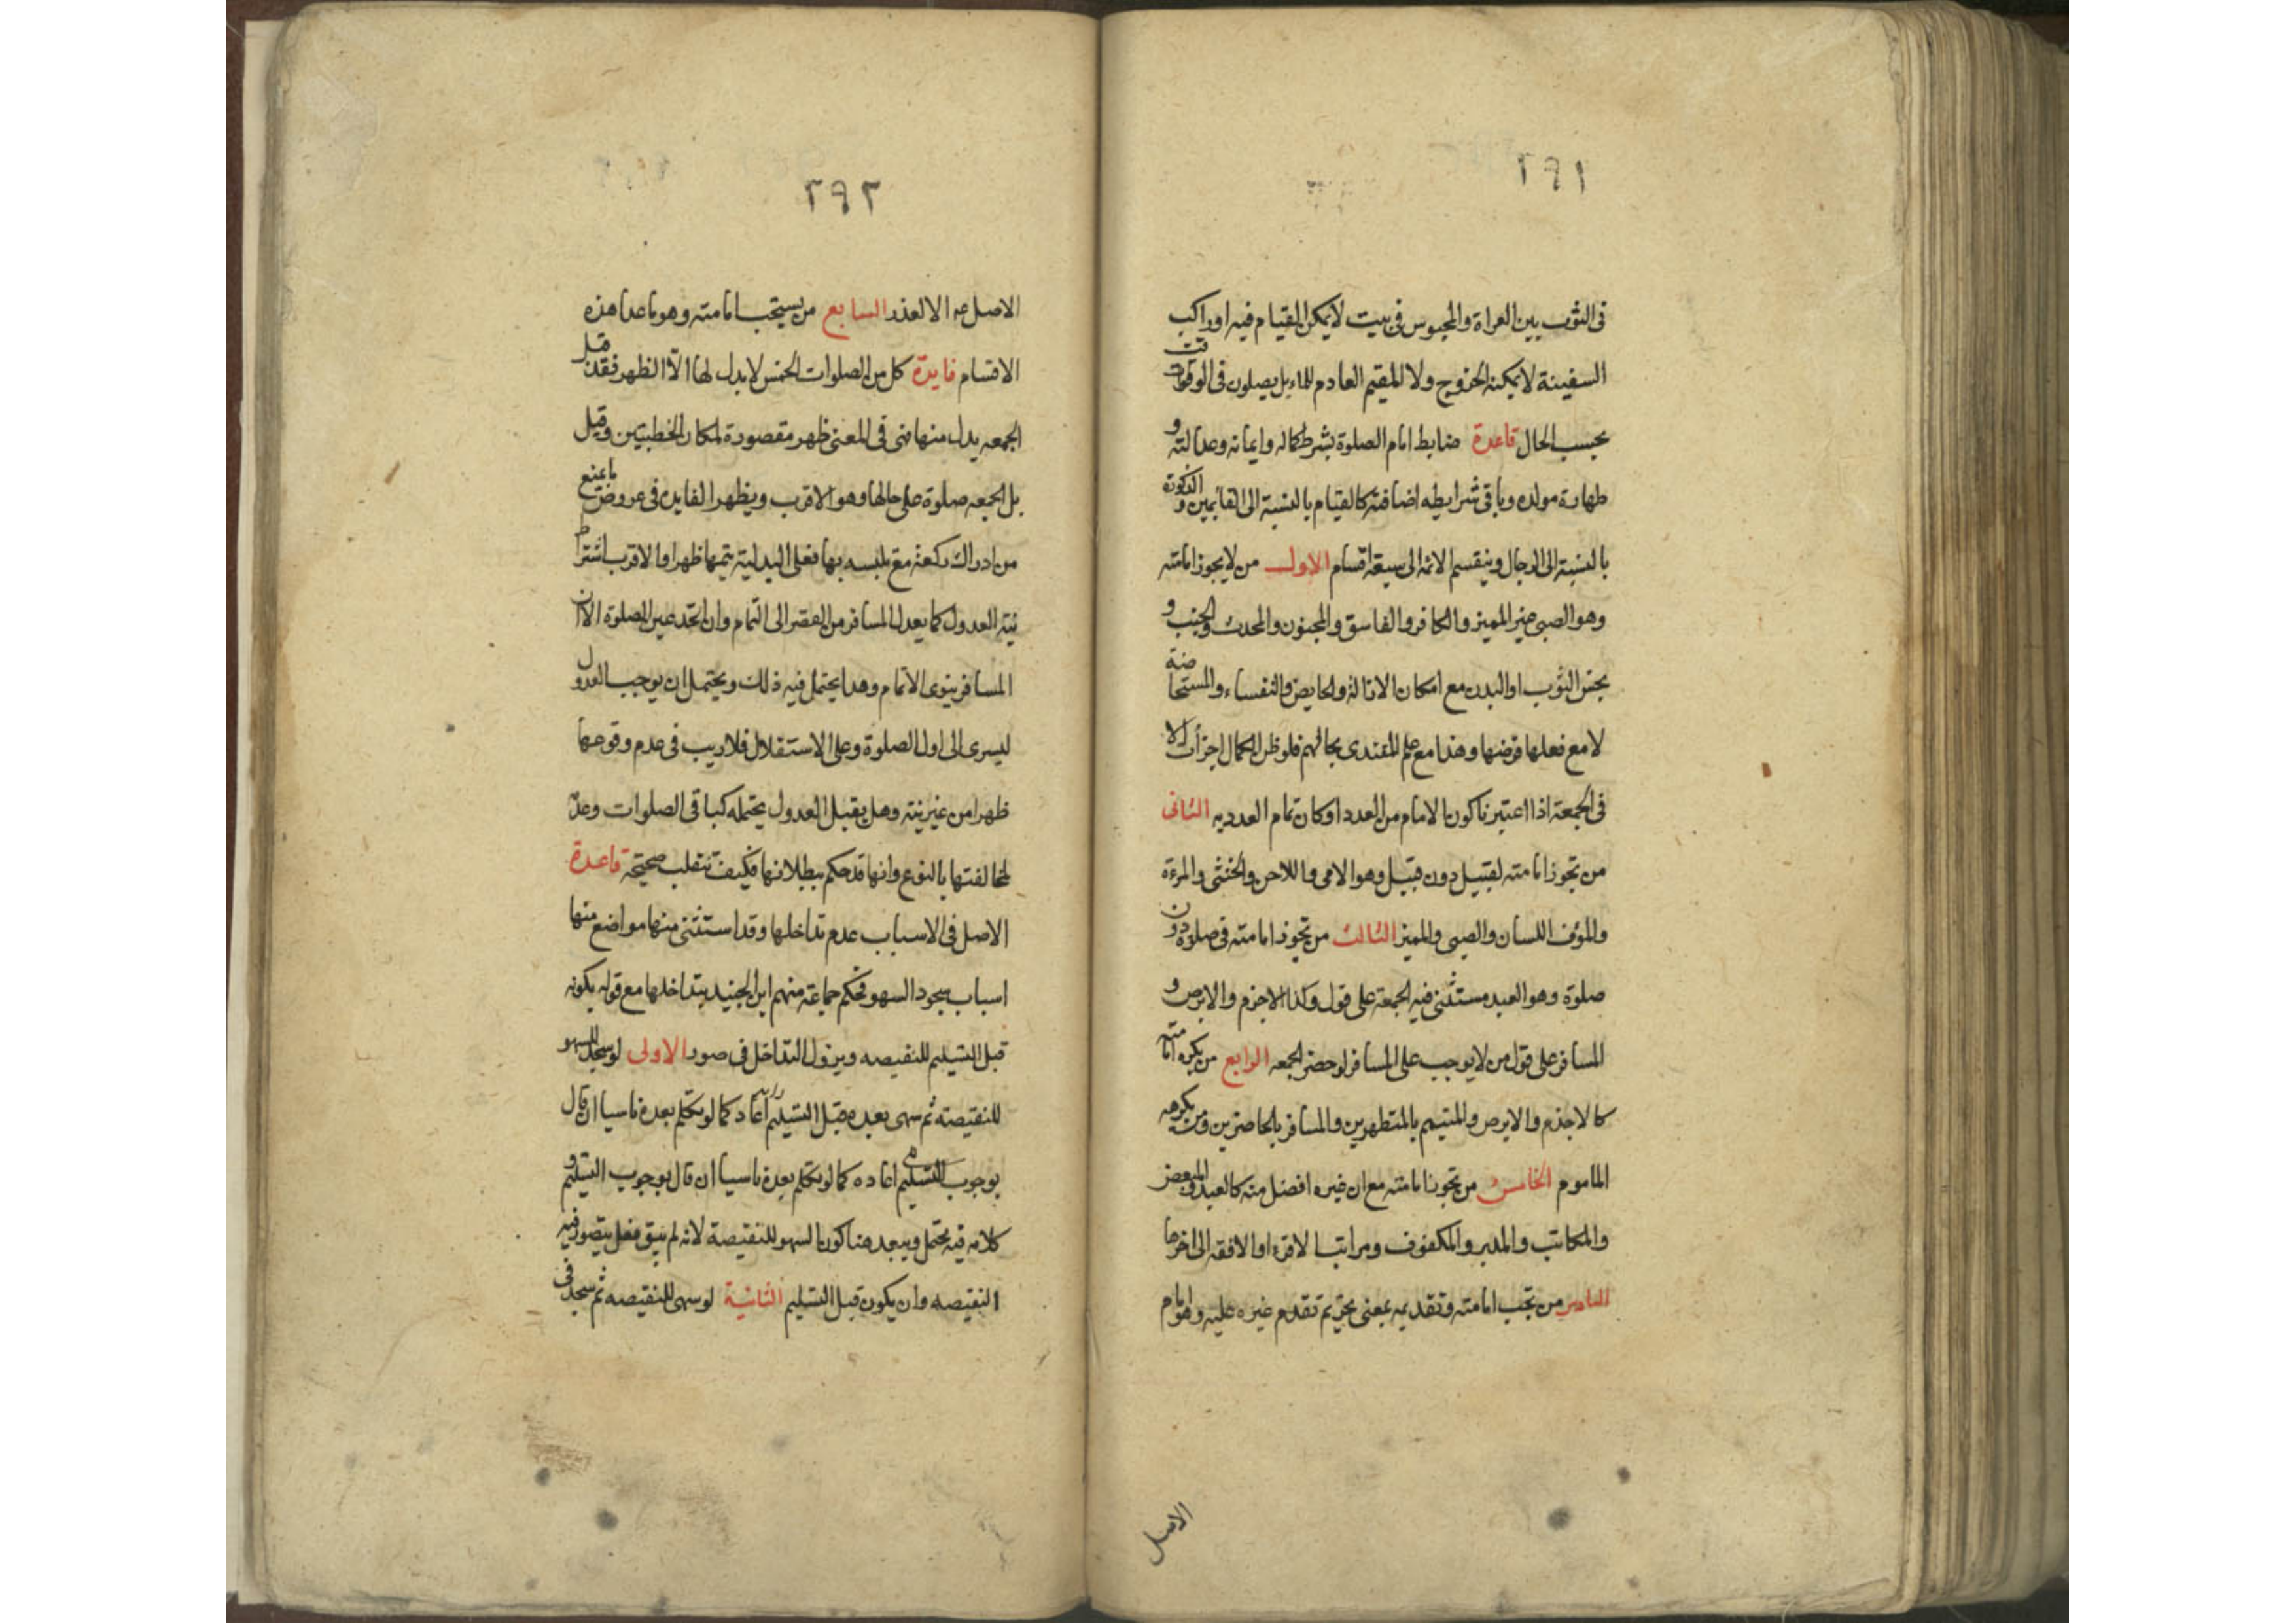 ٢٩١
فى الثوب بين العراة والمحبوس فى بيت لا يمكن القيام فيه او راكب
السفينة لا يمكنه الخروج ولا المقيم العادم للماء بل يصلون فى الوقت
بحسب الحال قاعدة ضابط امام الصلوة بشرط كماله وايمانه وعدالته و
طهارة مولده وباقى شرايطه اضافته كالقيام بالنسبة الى القايمين والذكورة
بالنسبة الى الرجال وينقسم الائمه الى سبعة اقسام الاول من لا يجوز امامته
وهو الصبى غير المميز والكافر والفاسق والمجنون والمحدث والجنب و
نجس الثوب او البدن مع امكان الازالة والحايض والنفساء والمستحاضة
لا مع فعلها فرضها وهذا مع علم المقتدى بحالهم فلو ظن الكمال اجزأت الا
فى الجمعة اذا اعتبرنا كون الامام من العدد او كان تمام العدد به الثانى
من تجوز امامته لقبيل دون قبيل وهو الامى واللاحن والخنثى والمرءة
والمؤف اللسان والصبى والمميز الثالث من تجوز امامته فى صلوة دون
صلوة وهو العبد مستثنى فيه الجمعة على قول وكذا الاجزم والابرص و
المسافر على قول من لا يوجب على المسافر لو حضر الجمعه الرابع من يكره امامته
كالاجذم والابرص والمتيمم بالمتطهرين والمسافر بالحاضرين ومن يكرهه
الماموم الخامس من تجوز امامته مع ان غيره افضل منه كالعبد والمبعض
والمكاتب والمدبر والمكفوف ومراتب الاقرء او الافقه الى اخرها
السادس من تجب امامته وتقديمه بمعنى تحريم تقدم غيره عليه وهو امام
الاصل
٢٩٢
الاصل عه الا لعذر السابع من يستحب امامته وهو ما عدا هذه
الاقسام فايدة كل من الصلوات الخمس لا بدل لها الّا الظهر فقد قيل
الجمعه بدل منها فهى فى المعنى ظهر مقصورة لمكان الخطبتين وقيل
بل الجمعه صلوة على حالها وهو الاقرب ويظهر الفايدة فى عروض ما يمنع
من ادراك ركعة مع تلبسه بها فعلى البدلية يتمها ظهرا والاقرب اشتراط
نية العدول كما يعدل المسافر من القصر الى التمام وان اتحد عين الصلوة الا ان
المسافر ينوى الاتمام وهذا يحتمل فيه ذلك ويحتمل ان يوجب العدول
ليسرى الى اول الصلوة وعلى الاستقلال فلا ريب فى عدم وقوعها
ظهرا من غير نية وهل يقبل العدول يحتمله كباقى الصلوات وعدمه
لمخالفتها بالنوع وانها قد حكم ببطلانها فكيف تنقلب صحيحة قاعدة
الاصل فى الاسباب عدم تداخلها وقد استثنى منها مواضع منها
اسباب سجود السهو فحكم جماعة منهم ابن الجنيد بتداخلها مع قوله بكونه
قبل التسليم للنقيصه ويزول التداخل فى صور الاولى لو سجد للسهو
للنقيصة ثم سهى بعده قبل التسليم اعاد كما لو تكلم بعده ناسيا ان قال
بوجوب التسليم اعاده كما لو تكلم بعده ناسيا ان قال بوجوب التسليم و
كلامه فيه محتمل ويبعد هنا كون السهو للنقيصة لانه لم يبق فعل يتصور فيه
النقيصه وان يكون قبل التسليم الثانية لو سهى للنقيصه ثم سجد فى